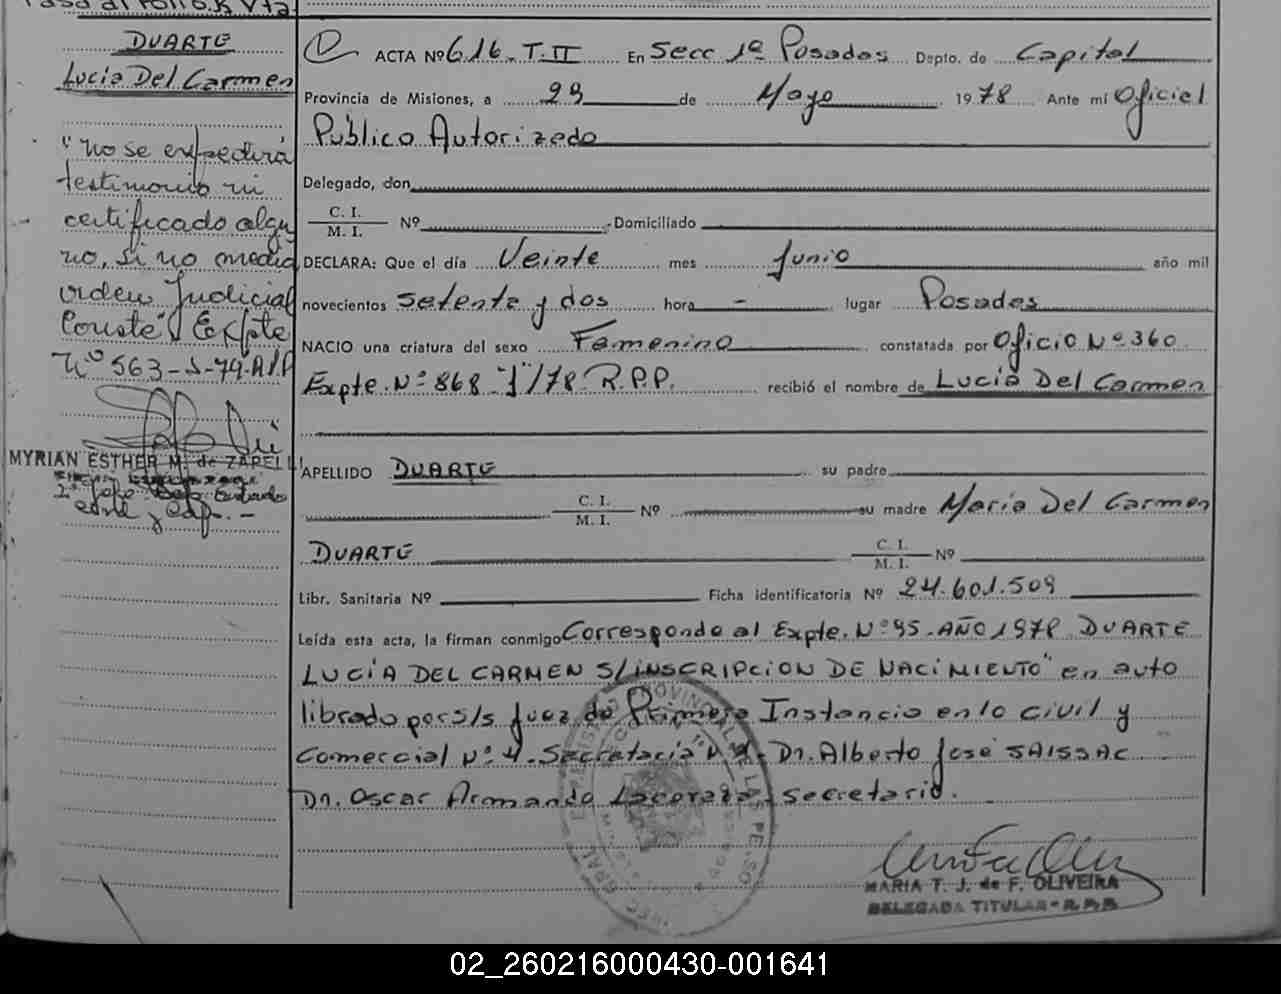 DUARTE
Lucia Del Carmen
"no se expedirá
testimonio ni
certificado algu
no, si no media
orden Judicial
Conste" Expte
Nº 563-S-79-
MYRIAN ESTHER M. de ZAPELLI
2º Jefe
ACTA Nº 616-T.II En Secc 1ª Posadas Depto. de Capital
Provincia de Misiones, a 29 de Mayo 1978 Ante mí Oficial
Público Autorizado
Delegado, don
C. I.
M. I. Nº Domiciliado
DECLARA: Que el día Veinte mes Junio año mil
novecientos setenta y dos hora - lugar Posadas
NACIO una criatura del sexo Femenino constatada por Oficio Nº 360
Expte. Nº 868-"J"/78-R.P.P. recibió el nombre de Lucía Del Carmen
APELLIDO DUARTE su padre
C. I.
M. I. Nº su madre María Del Carmen
DUARTE C. I.
M. I. Nº
Libr. Sanitaria Nº Ficha identificatoria Nº 24.601.509
Leída esta acta, la firman conmigo Corresponde al Expte. Nº 95-AÑO 1978 DUARTE
LUCÍA DEL CARMEN S/INSCRIPCION DE NACIMIENTO" en auto
librado por s/s Juez de Primera Instancia en lo civil y
Comercial Nº 4. Secretaría Dr. Alberto José SAISSAC
Dr. Oscar Armando secretario.
MARIA T. J. de F. OLIVEIRA
DELEGADA TITULAR - R.P.P.
02_260216000430-001641